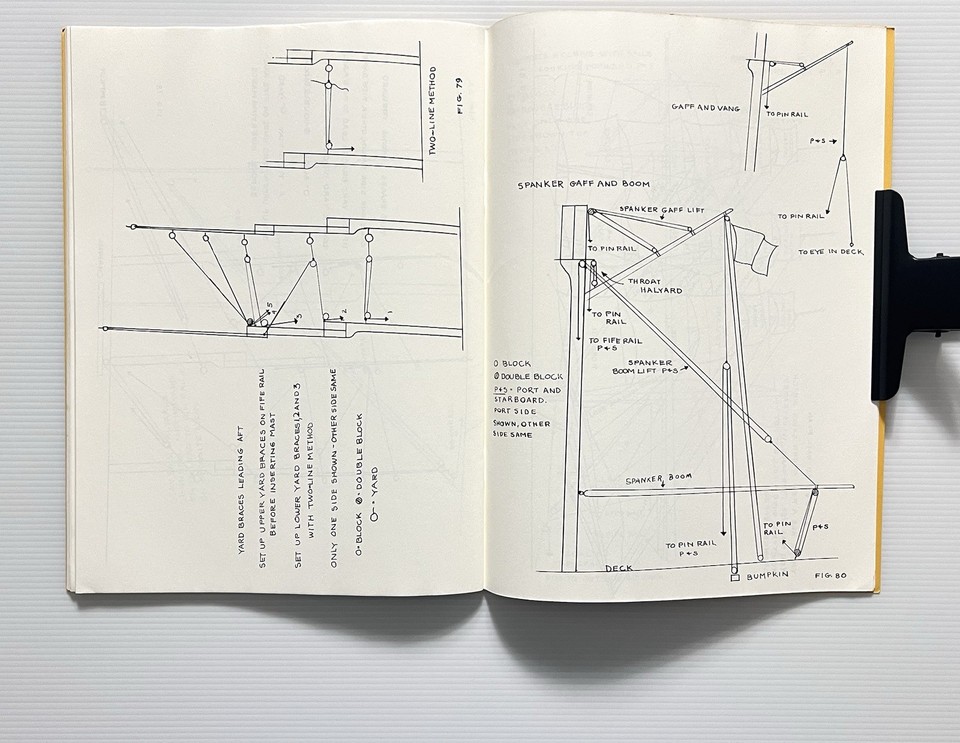 TWO-LINE METHOD
FIG. 79
5
4
3
2
1
YARD BRACES LEADING AFT
SET UP UPPER YARD BRACES ON FIFE RAIL
BEFORE INSERTING MAST
SET UP LOWER YARD BRACES 1,2 AND 3
WITH TWO-LINE METHOD
ONLY ONE SIDE SHOWN - OTHER SIDE SAME
O-BLOCK ⊗-DOUBLE BLOCK
O-- YARD
GAFF AND VANG
TO PIN RAIL
P+S
TO PIN RAIL
TO EYE IN DECK
SPANKER GAFF AND BOOM
SPANKER GAFF LIFT
TO PIN RAIL
THROAT
HALYARD
TO PIN
RAIL
TO FIFE RAIL
P+S
SPANKER
BOOM LIFT P+S
O BLOCK
⊗ DOUBLE BLOCK
P+S - PORT AND
STARBOARD.
PORT SIDE
SHOWN, OTHER
SIDE SAME
SPANKER BOOM
TO PIN RAIL
P+S
TO PIN
RAIL
P+S
DECK
BUMPKIN
FIG. 80